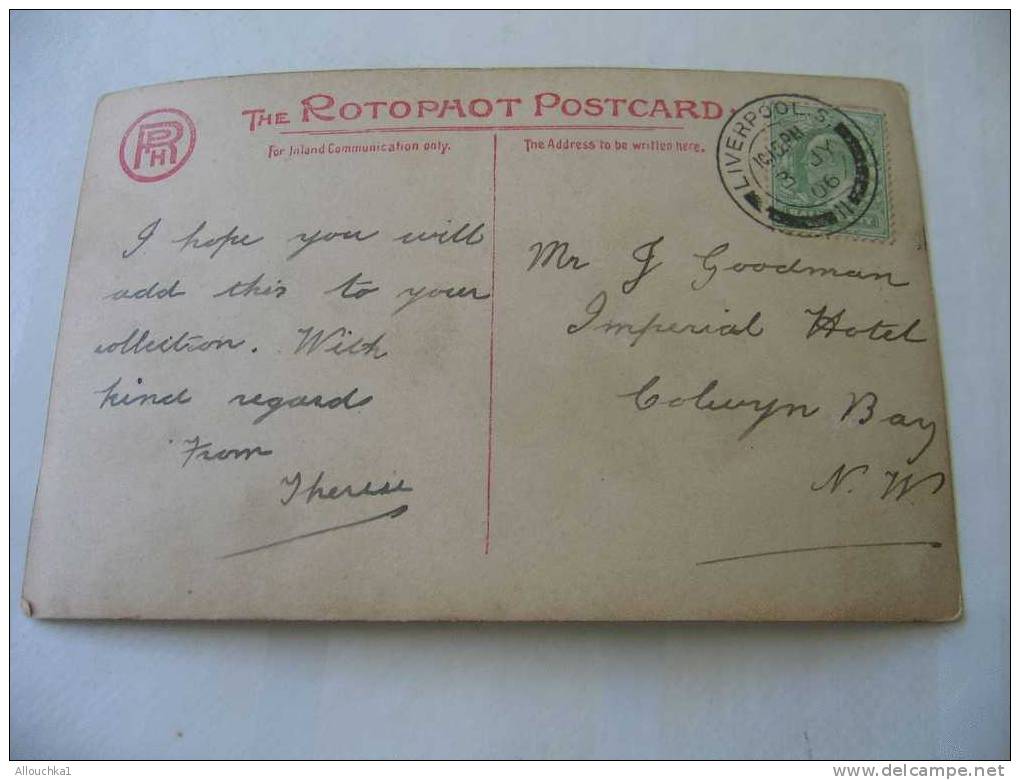 THE ROTOPHOT POSTCARD
RPH
For Inland Communication only.
The Address to be written here.
LIVERPOOL. S.
3 JY
06
11
I hope you will
add this to your
collection. With
kind regards
From
Therese
Mr J Goodman
Imperial Hotel
Colwyn Bay
N. W.
Allouchka1
www.delcampe.net